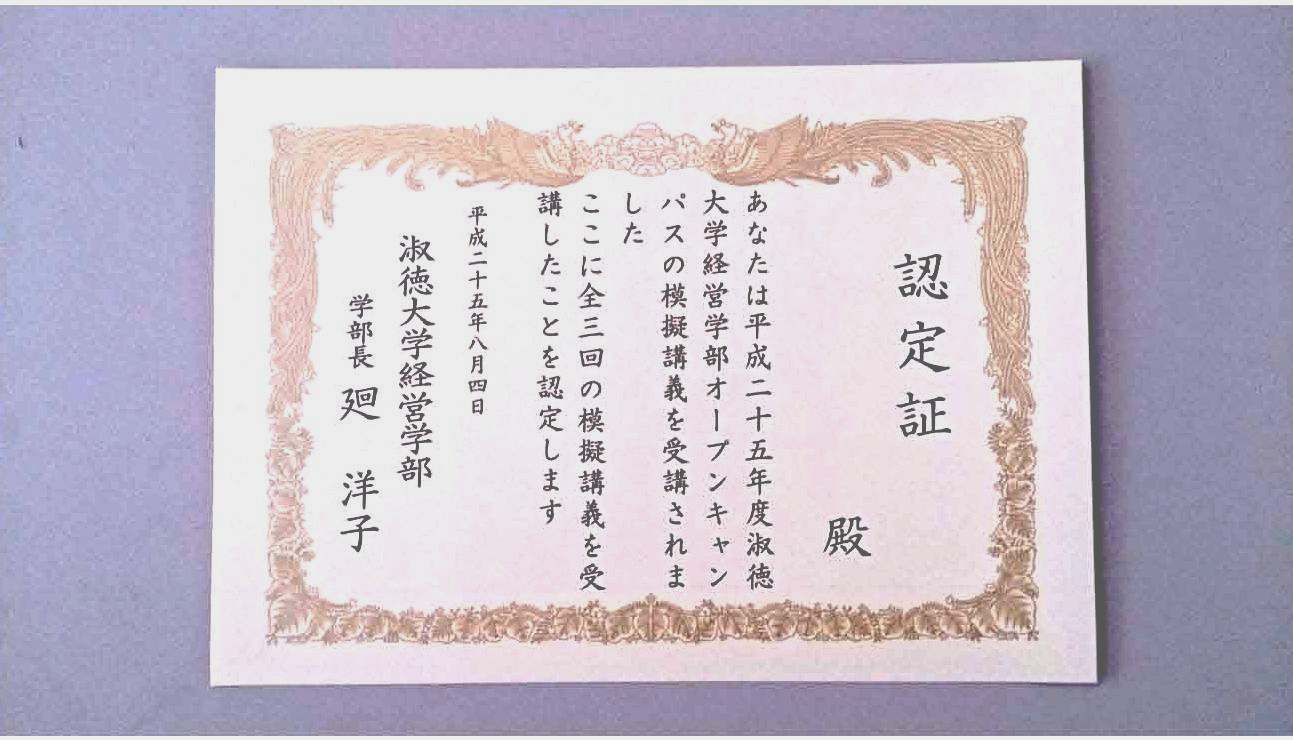 認定証
殿
あなたは平成二十五年度淑徳
大学経営学部オープンキャン
パスの模擬講義を受講されま
した
ここに全三回の模擬講義を受
講したことを認定します
平成二十五年八月四日
淑徳大学経営学部
学部長 廻 洋子